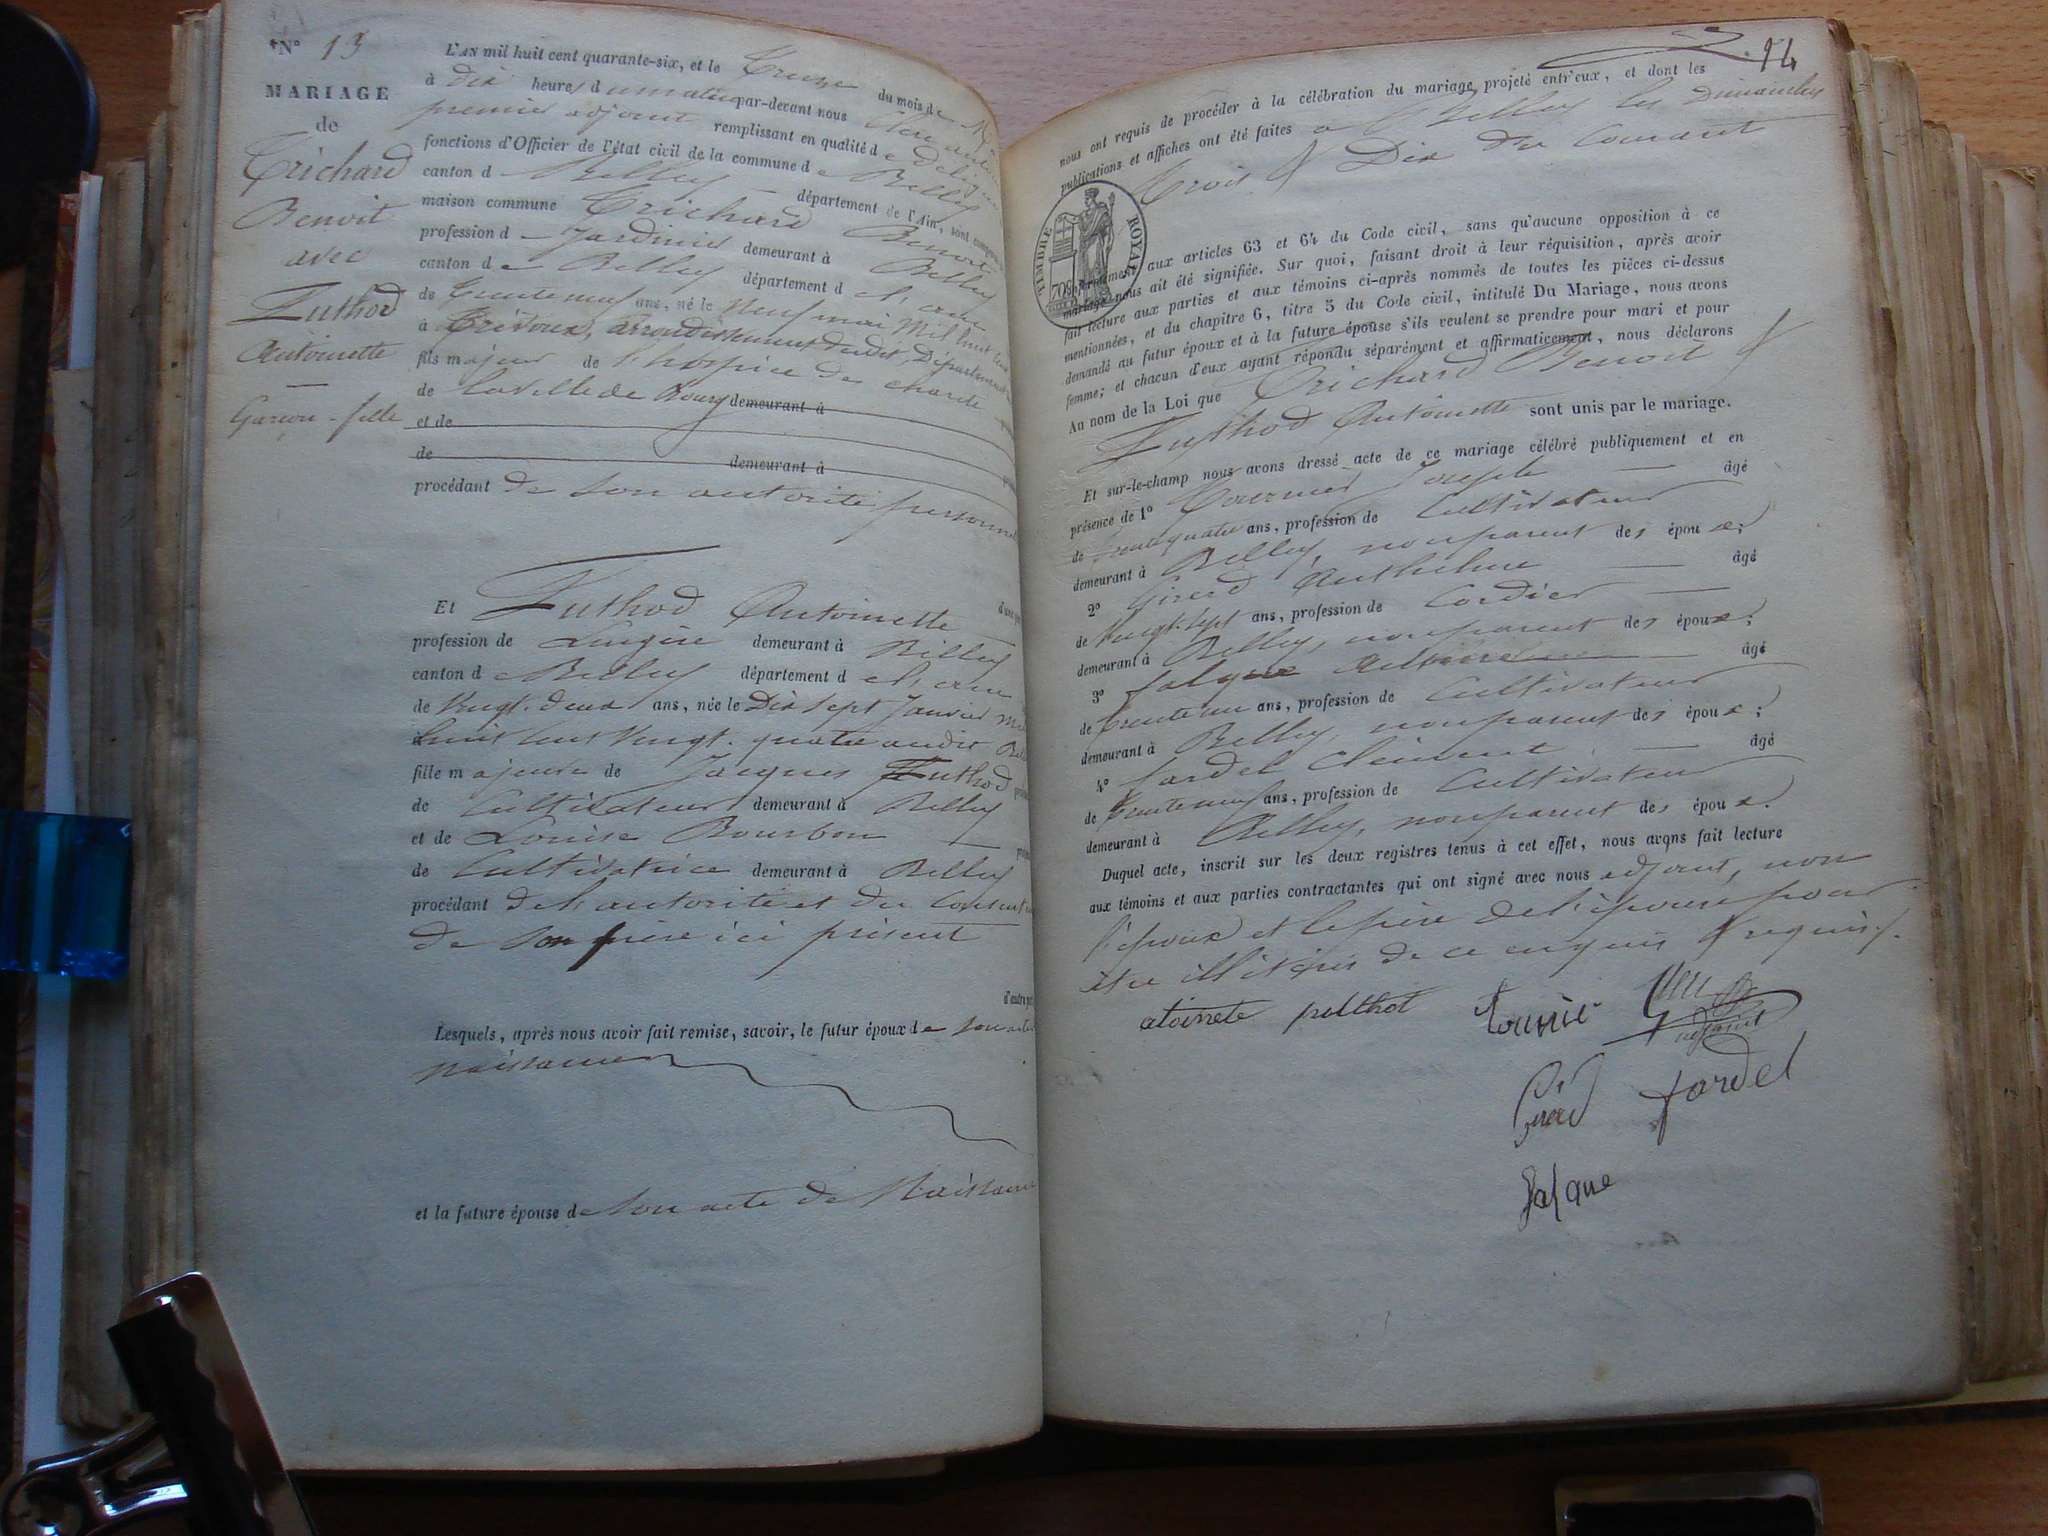 N° 13
MARIAGE
de
Trichard
Benoit
avec
Futhod
Antoinette
Garçon - fille
L'AN mil huit cent quarante-six, et le Treize du mois de
à dix heures du matin par-devant nous
premier adjoint remplissant en qualité de délégué
fonctions d'Officier de l'état civil de la commune de Belley
canton d Belley département de l'Ain, sont comparus
maison commune Trichard Benoit
profession d Jardinier demeurant à Belley
canton de Belley département d
de trente neuf ans, né le neuf mai mil huit cent
à Trévoux, arrondissement dudit, Département
fils majeur de l'hospice de charité
de la ville de Bourg demeurant à
et de
de demeurant à
procédant de son autorité personnelle
d'une part
Et Futhod Antoinette
profession de Lingère demeurant à Belley
canton de Belley département d
de Vingt-deux ans, née le Dix sept Janvier mil
huit cent vingt-quatre audit Belley
fille majeure de Jacques Futhod
de Cultivateur demeurant à Belley
et de Louise Bourbon
de Cultivatrice demeurant à Belley
procédant de l'autorité et du consentement
de son père ici présent
d'autre part
Lesquels, après nous avoir fait remise, savoir, le futur époux de son acte
naissance
et la future épouse de son acte de Naissance
14
nous ont requis de procéder à la célébration du mariage projeté entr'eux, et dont les
publications et affiches ont été faites à Belley les Dimanches
trois & Dix du courant
TIMBRE ROYAL
aux articles 63 et 64 du Code civil, sans qu'aucune opposition à ce
mariage nous ait été signifiée. Sur quoi, faisant droit à leur réquisition, après avoir
fait lecture aux parties et aux témoins ci-après nommés de toutes les pièces ci-dessus
mentionnées, et du chapitre 6, titre 5 du Code civil, intitulé Du Mariage, nous avons
demandé au futur époux et à la future épouse s'ils veulent se prendre pour mari et pour
femme; et chacun d'eux ayant répondu séparément et affirmativement, nous déclarons
Au nom de la Loi que Trichard Benoit &
Futhod Antoinette sont unis par le mariage.
Et sur-le-champ nous avons dressé acte de ce mariage célébré publiquement et en
présence de 1° Tournier Joseph âgé
de trente quatre ans, profession de Cultivateur
demeurant à Belley, non parent des époux;
2° Girerd Anthelme âgé
de Vingt-sept ans, profession de Cordier
demeurant à Belley, non parent des époux;
3° Falque Antoine âgé
de trente un ans, profession de Cultivateur
demeurant à Belley, non parent des époux;
4° Jardel Clément âgé
de trente neuf ans, profession de Cultivateur
demeurant à Belley, non parent des époux.
Duquel acte, inscrit sur les deux registres tenus à cet effet, nous avons fait lecture
aux témoins et aux parties contractantes qui ont signé avec nous adjoint, non
l'époux et le père de l'épouse pour
être illitérés de ce enquis & requis.
atoinete puthot
Tournié
adjoint
Girerd
Jardel
Falque